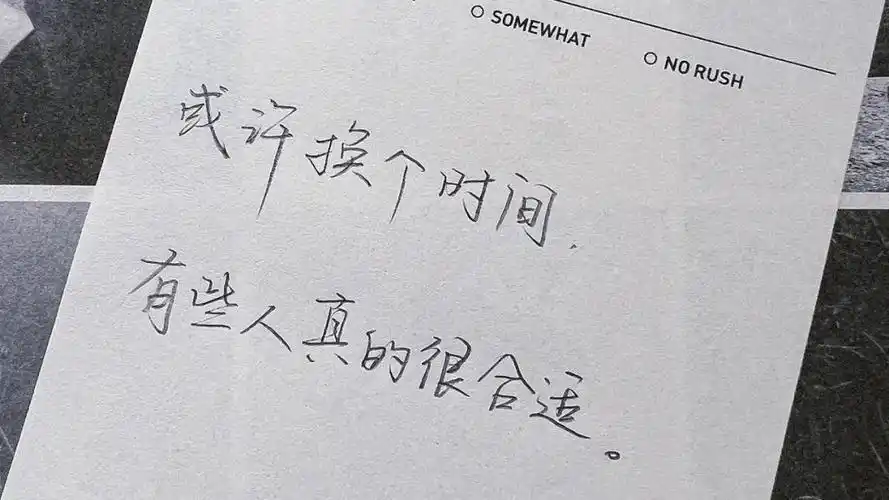 SOMEWHAT
NO RUSH
或许换个时间,
有些人真的很合适。